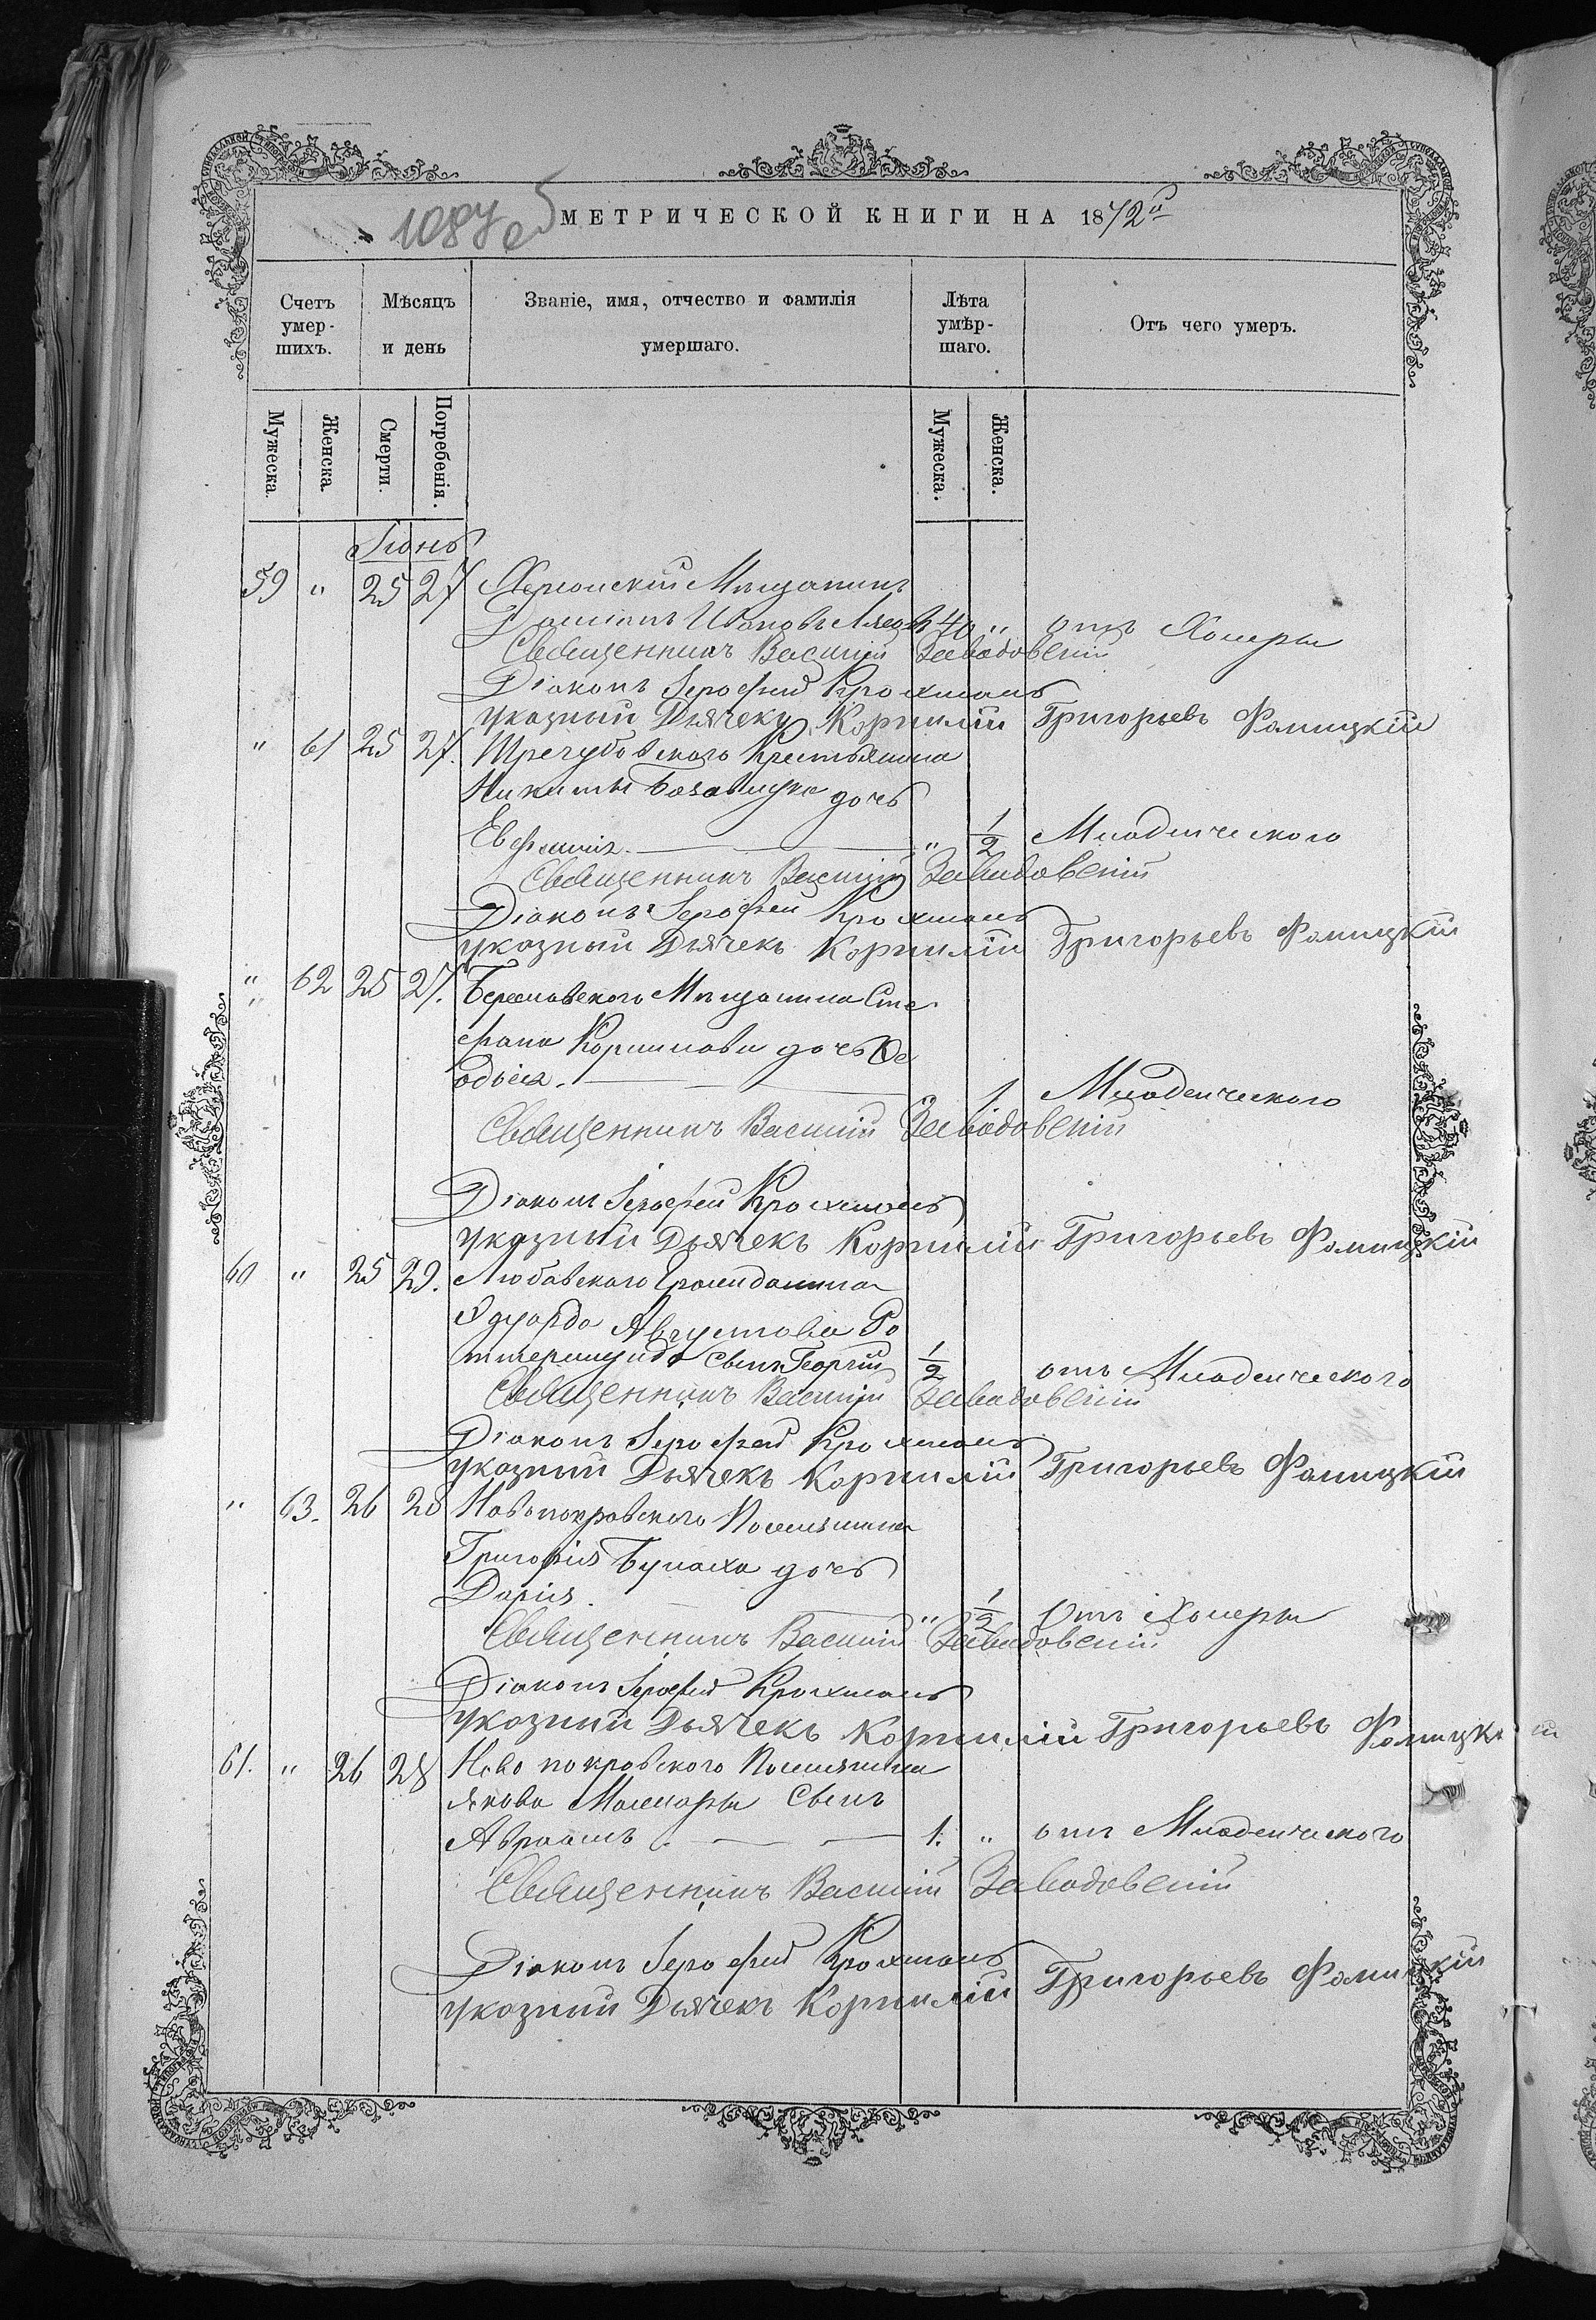 1087 об
МЕТРИЧЕСКОЙ КНИГИ НА 1872й
Счетъ умер-шихъ.
Мѣсяцъ и день
Званіе, имя, отчество и фамилія умершаго.
Лѣта умѣр-шаго.
Отъ чего умеръ.
Мужеска.
Женска.
Смерти.
Погребенія.
Мужеска.
Женска.
Іюнь
59 " 25 27 Херсонскій Мѣщанинъ
Ивановъ 40 " отъ Холеры
Священникъ Василій Заводовскій
Діаконъ Іерофей Крохмаль
Указный Дьячекъ Корнилій Григорьевъ Фомицкій
" 61 25 27. Крестьянина
Никиты дочь
Евфимія. " 1/2 Младенческого
Священникъ Василій Заводовскій
Діаконъ Іерофей Крохмаль
Указный Дьячекъ Корнилій Григорьевъ Фомицкій
" 62 25 27. Бериславского Мѣщанина Сте
фана дочь Ѳе
одосія. " 1 Младенческого
Священникъ Василій Заводовскій
Діаконъ Іерофей Крохмаль
Указный Дьячекъ Корнилій Григорьевъ Фомицкій
60 " 25 29. Гражданина
Эдуарда Августова Ро
сынъ Георгій 1/2 отъ Младенческого
Священникъ Василій Заводовскій
Діаконъ Іерофей Крохмаль
Указный Дьячекъ Корнилій Григорьевъ Фомицкій
" 63. 26 28 Новопокровского Поселянина
Григорія Булаха дочь
Дарія. " 1/2 Отъ Холеры
Священникъ Василій Заводовскій
Діаконъ Іерофей Крохмаль
Указный Дьячекъ Корнилій Григорьевъ Фомицкій
61. " 26 28 Ново покровского Поселянина
Якова сынъ
Авраамъ. 1. " отъ Младенческого
Священникъ Василій Заводовскій
Діаконъ Іерофей Крохмаль
Указный Дьячекъ Корнилій Григорьевъ Фомицкій